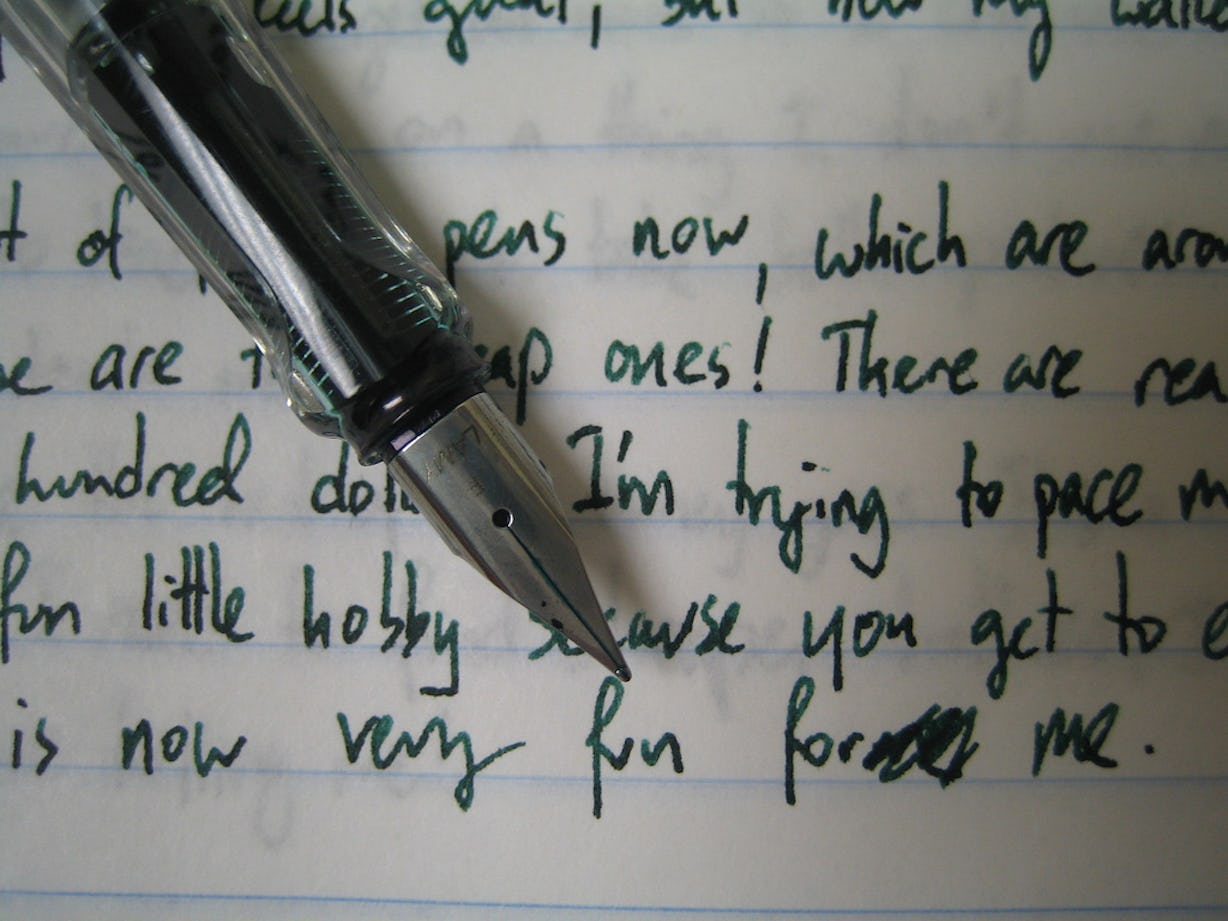 great, but now my
of pens now, which are
are ones! There are
hundred I'm trying to pace
fun little hobby because you get to
is now very fun for me.
LAMY